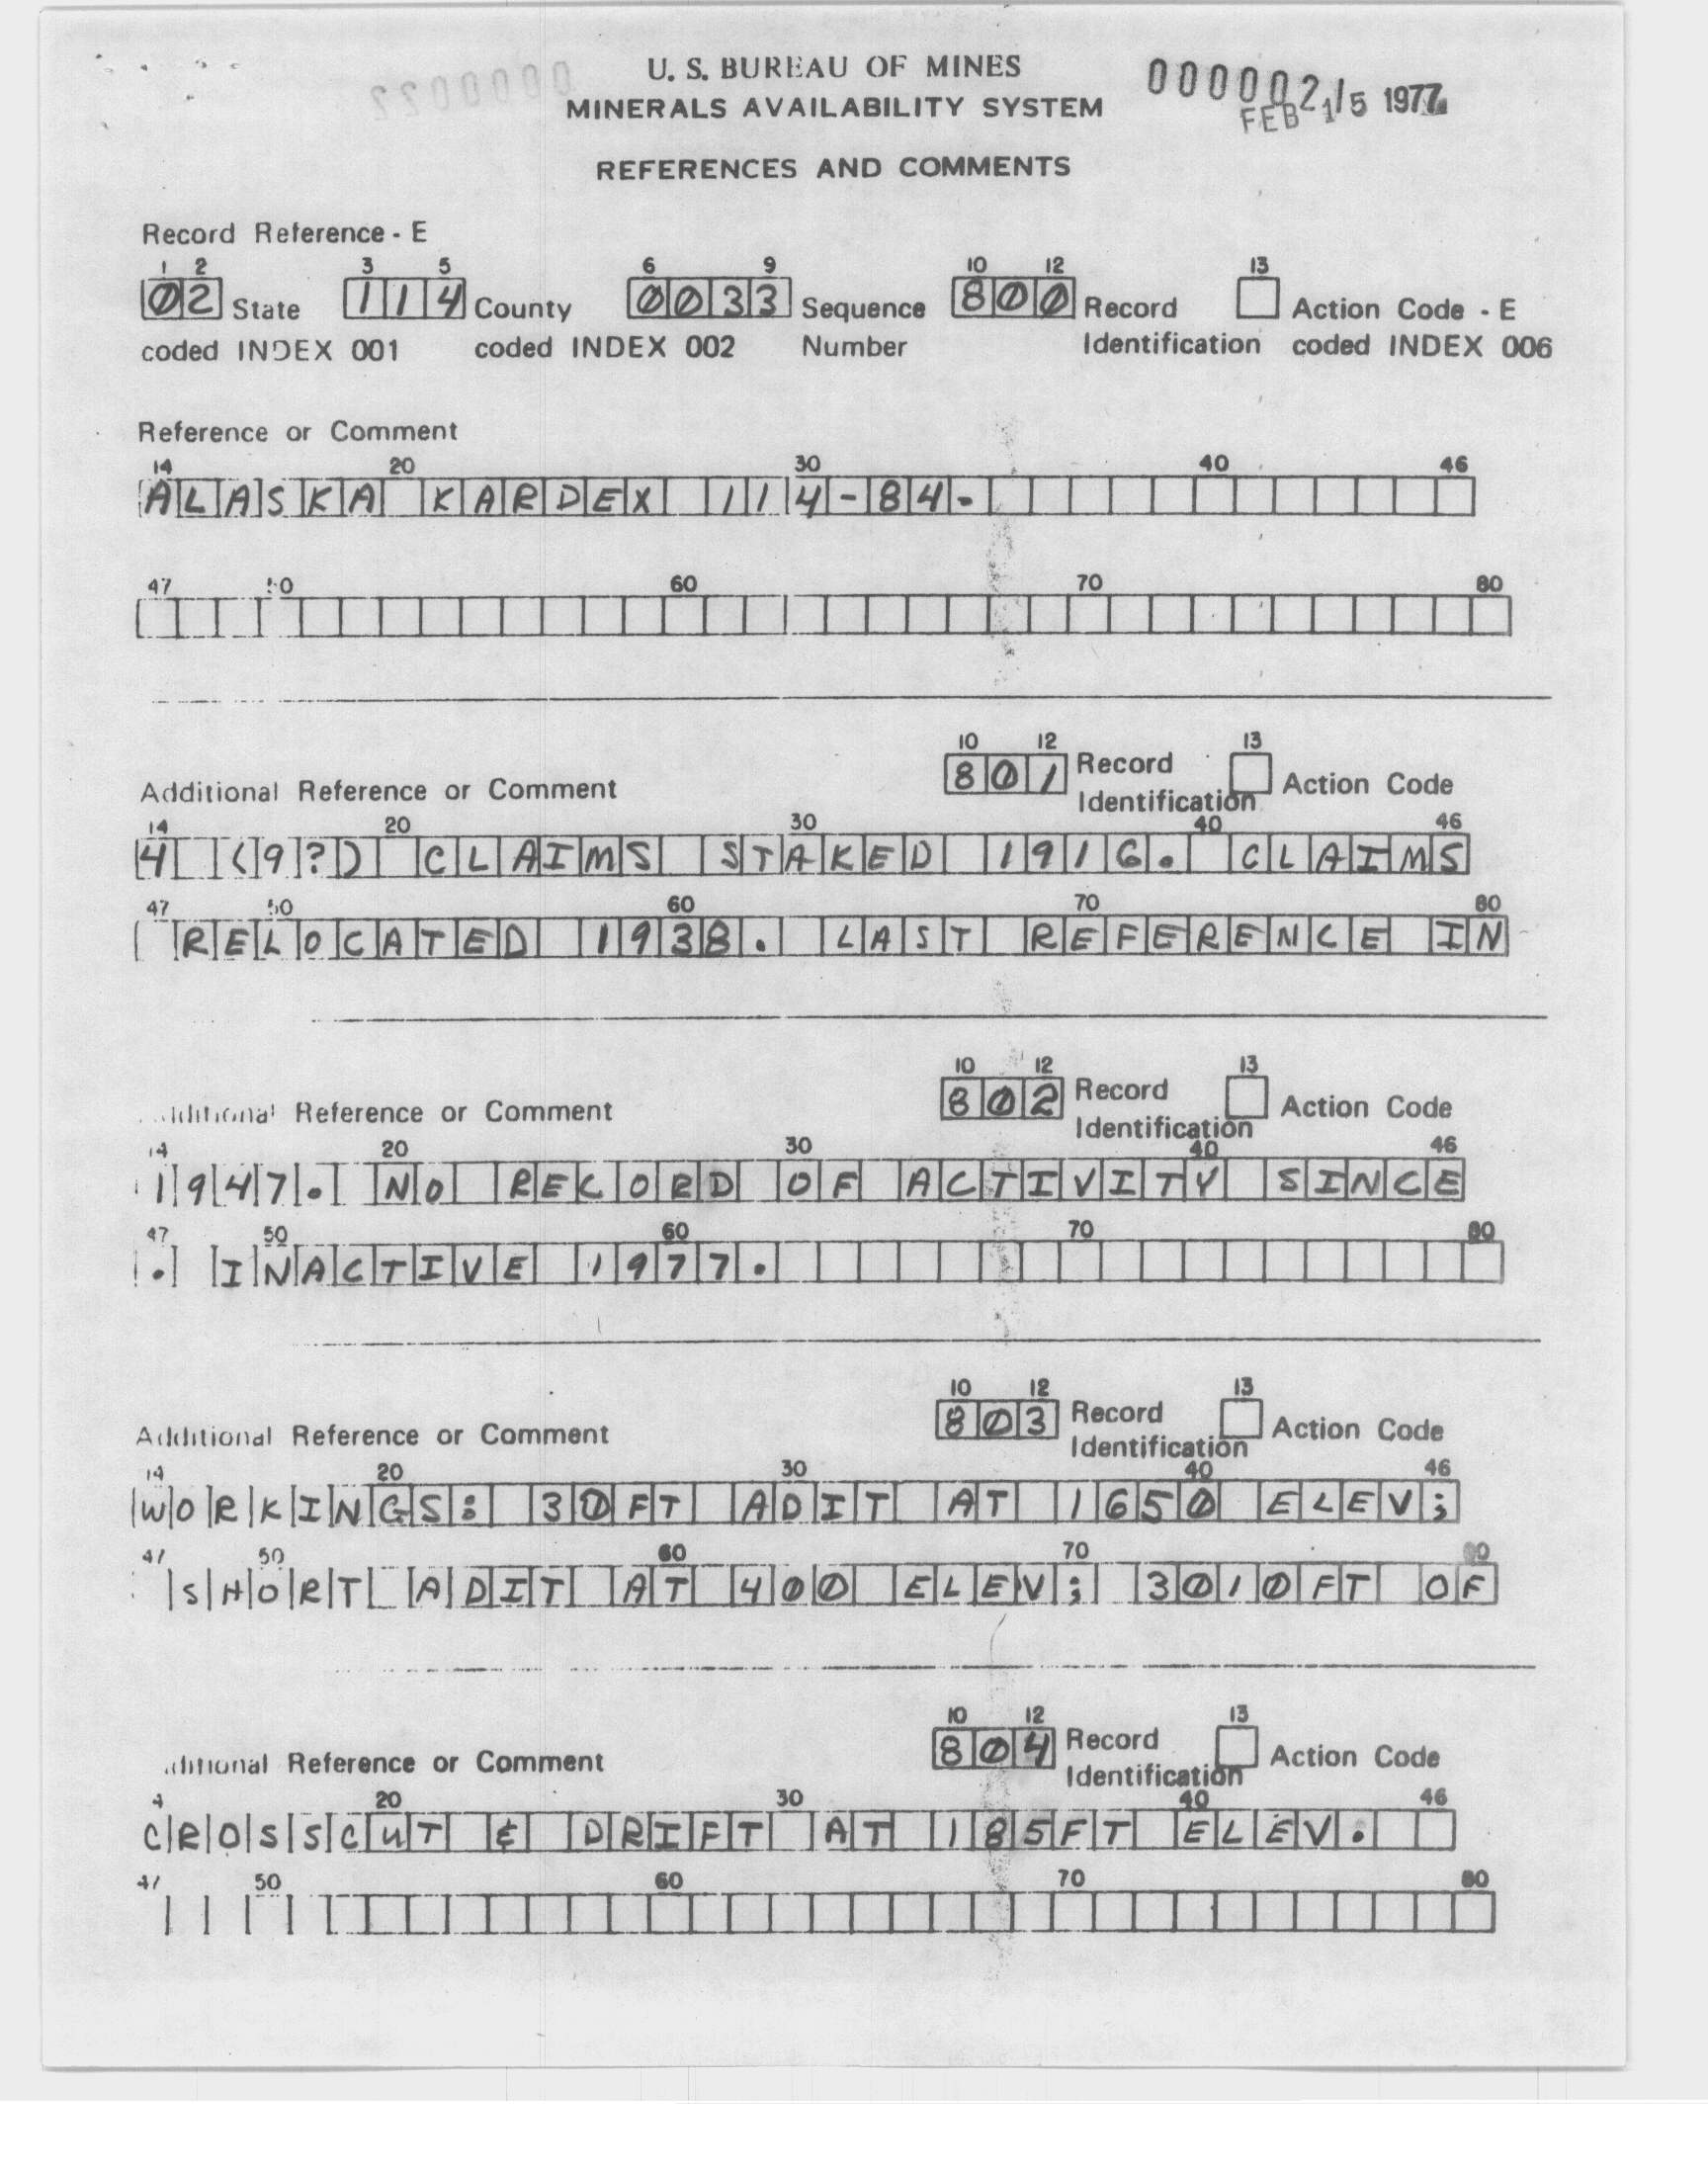 U. S. BUREAU OF MINES
MINERALS AVAILABILITY SYSTEM
FEB 15 1977
REFERENCES AND COMMENTS
Record Reference - E
1 2 3 5 6 9 10 12 13
02 State 114 County 0033 Sequence 800 Record Action Code - E
coded INDEX 001 coded INDEX 002 Number Identification coded INDEX 006
Reference or Comment
14 20 30 40 46
ALASKA KARDEX 114-84.
47 50 60 70 80
10 12 13
801 Record
Additional Reference or Comment Action Code
Identification
14 20 30 40 46
4 (9?) CLAIMS STAKED 1916. CLAIMS
47 50 60 70 80
RELOCATED 1938. LAST REFERENCE IN
10 12 13
802 Record
Additional Reference or Comment Action Code
Identification
14 20 30 40 46
1947. NO RECORD OF ACTIVITY SINCE
47 50 60 70 80
. INACTIVE 1977.
10 12 13
803 Record
Additional Reference or Comment Action Code
Identification
14 20 30 40 46
WORKINGS: 30FT ADIT AT 1650 ELEV;
47 50 60 70 80
SHORT ADIT AT 400 ELEV; 3010FT OF
10 12 13
804 Record
Additional Reference or Comment Action Code
Identification
4 20 30 40 46
CROSSCUT & DRIFT AT 185FT ELEV.
47 50 60 70 80